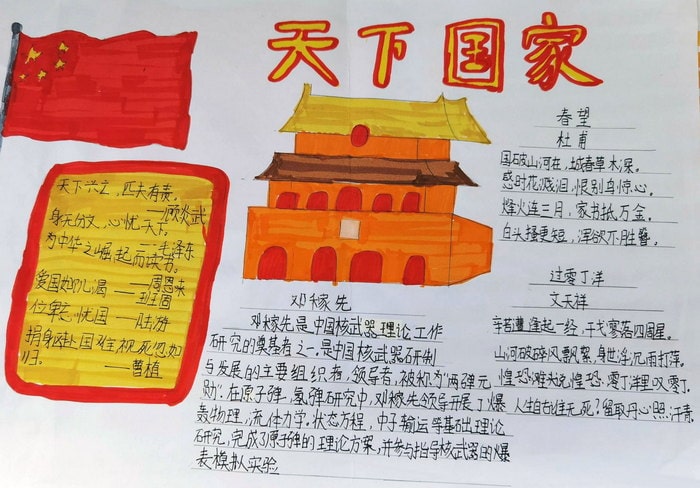 天下国家
天下兴亡，匹夫有责。
——顾炎武
身无分文，心忧天下。
——毛泽东
为中华之崛起而读书。
——周恩来
爱国如饥渴
——班固
位卑忧国——陆游
捐躯赴国难，视死忽如
归。——曹植
邓稼先
邓稼先是中国核武器理论工作
研究的奠基者之一，是中国核武器研制
与发展的主要组织者，领导者，被称为"两弹元
勋"。在原子弹，氢弹研究中，邓稼先领导开展了爆
轰物理，流体力学，状态方程，中子输运等基础理论
研究，完成了原子弹的理论方案，并参与指导核武器的爆
轰模拟实验
春望
杜甫
国破山河在，城春草木深。
感时花溅泪，恨别鸟惊心。
烽火连三月，家书抵万金。
白头搔更短，浑欲不胜簪。
过零丁洋
文天祥
辛苦遭逢起一经，干戈寥落四周星。
山河破碎风飘絮，身世浮沉雨打萍。
惶恐滩头说惶恐，零丁洋里叹零丁。
人生自古谁无死？留取丹心照汗青